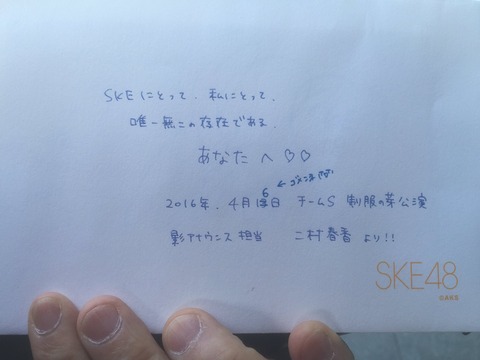 SKEにとって、私にとって、
唯一無二の存在である
あなたへ♡♡
6 ← ゴメンネ
2016年、4月18日 チームS 制服の芽公演
影アナウンス担当 二村春香より!!
SKE48